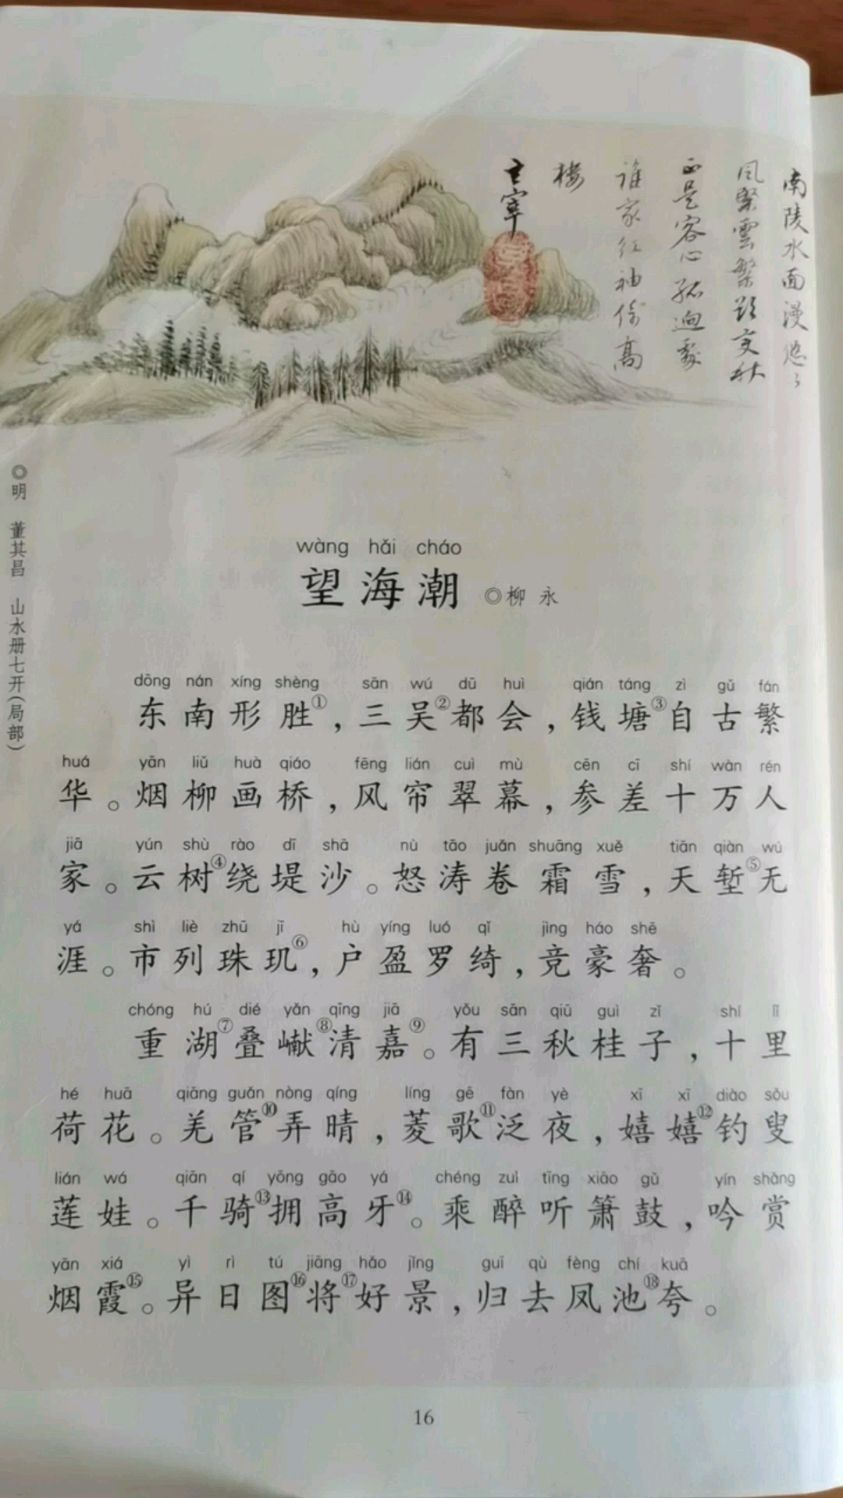 南陵水面漫悠々
风紧雲繁欲变秋
正是客心孤迥处
谁家红袖倚高
楼
玄宰
◎明 董其昌 山水册七开（局部）
wàng hǎi cháo
望海潮 ◎柳永
dōng nán xíng shèng sān wú dū huì qián táng zì gǔ fán
东南形胜①，三吴②都会，钱塘③自古繁
huá yān liǔ huà qiáo fēng lián cuì mù cēn cī shí wàn rén
华。烟柳画桥，风帘翠幕，参差十万人
jiā yún shù rào dī shā nù tāo juǎn shuāng xuě tiān qiàn wú
家。云树④绕堤沙。怒涛卷霜雪，天堑⑤无
yá shì liè zhū jī hù yíng luó qǐ jìng háo shē
涯。市列珠玑⑥，户盈罗绮，竞豪奢。
chóng hú dié yǎn qīng jiā yǒu sān qiū guì zǐ shí lǐ
重湖⑦叠巘⑧清嘉⑨。有三秋桂子，十里
hé huā qiāng guǎn nòng qíng líng gē fàn yè xī xī diào sǒu
荷花。羌管⑩弄晴，菱歌⑪泛夜，嬉嬉⑫钓叟
lián wá qiān qí yōng gāo yá chéng zuì tīng xiāo gǔ yín shǎng
莲娃。千骑⑬拥高牙⑭。乘醉听箫鼓，吟赏
yān xiá yì rì tú jiāng hǎo jǐng guī qù fèng chí kuā
烟霞⑮。异日图⑯将⑰好景，归去凤池⑱夸。
16